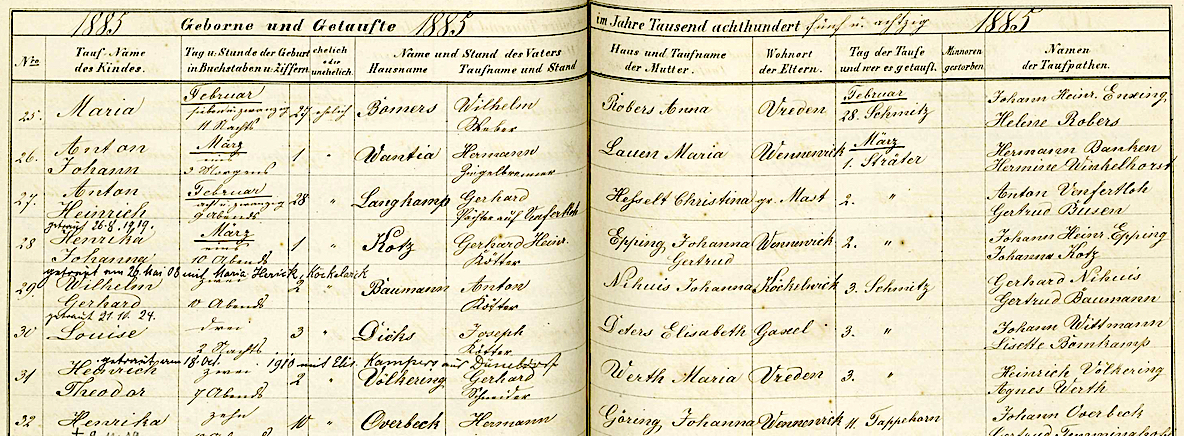 1885 Geborne und Getaufte 1885 im Jahre Tausend achthundert fünf u. achtzig 1885
Nro Tauf-Name des Kindes. Tag u. Stunde der Geburt in Buchstaben u. Ziffern ehelich oder unehelich. Name und Stand des Vaters Hausname Taufname und Stand Haus und Taufname der Mutter. Wohnort der Eltern. Tag der Taufe und wer es getauft. Minnoren gestorben. Namen der Taufpathen.
Februar Februar
25. Maria sieben u. zwanzig 27 ehelich Bomers Wilhelm Robers Anna Vreden 28. Schmitz Johann Heinr. Enxing,
11 Nachts Weber Helene Robers
26. Anton März 1 " Wantia Hermann Lauen Maria Wennewick März Hermann Banken
Johann eins 3 Morgens Ziegelbrenner 1. Sträter Hermine Winkelhorst
27. Anton Februar 28 " Langkamp Gerhard Hesselt Christina gr. Mast 2. " Anton Venfertloh
Heinrich acht u. zwanzig 9 Abends Pächter auf Venfertloh Gertrud Busen
getraut 26.8.1919.
28 Henrika März 1 " Kotz Gerhard Heinr. Epping, Johanna Wennewick 2. " Johann Heinr. Epping
Johanna eins 10 Abends Kötter Gertrud Johanna Kotz
getraut am 29. Mai 08 mit Maria Herick, Kockelwick
29. Wilhelm zwei 2 " Baumann Anton Nihuis Johanna Kockelwick 3. Schmitz Gerhard Nihuis
Gerhard 10 Abends Kötter Gertrud Baumann
getraut 21.10.24.
30 Louise drei 3 " Dicks Joseph Deters Elisabeth Gaxel 3. " Johann Wittmann
2 Nachts Kötter Lisette Bomkamp
getraut am 18. Oct. 1910 mit Elis. Kampers aus
31 Heinrich zwei 2 " Völkering Gerhard Werth Maria Vreden 3. " Heinrich Völkering
Theodor 7 Abends Schneider Agnes Werth
32 Henrika zehn 10 " Overbeck Hermann Göring, Johanna Wennewick 11. Tappehorn Johann Overbeck